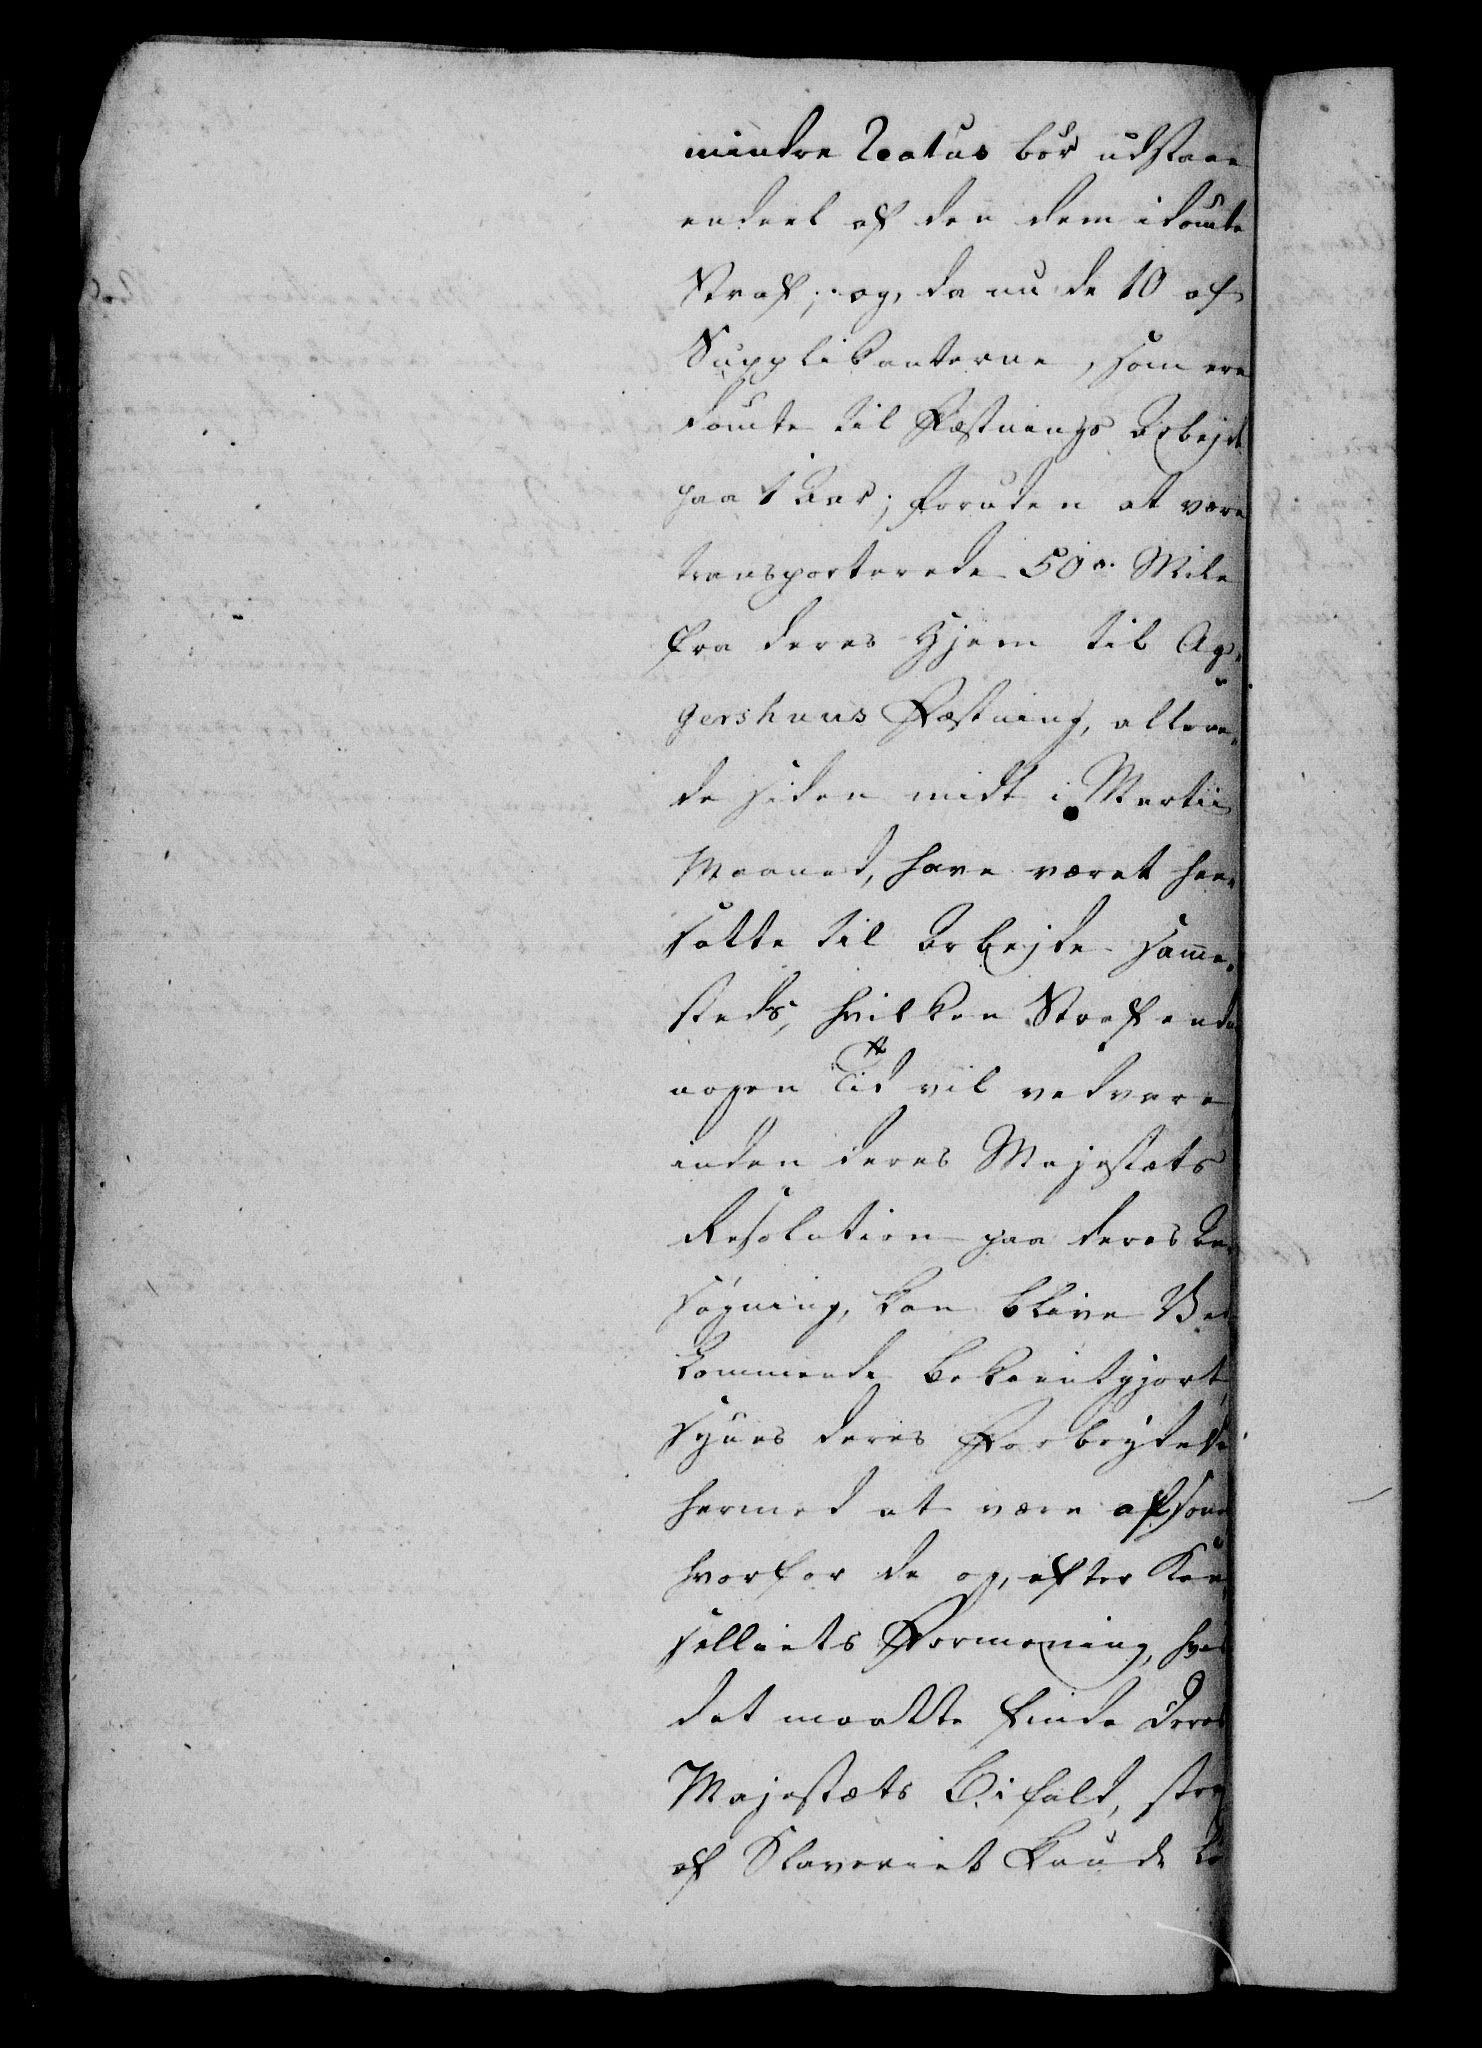 mindre Reatus bør udstaae
endeel af den dem idømte
Straf; og, da nu de 10 af
Supplikanterne, som ere
dømte til Fæstnings Arbejde
paa 1 Aar; foruden at være
transporterede 50 Mile
fra deres Hjem til Ag-
gershuus Fæstning, allere-
de siden midt i Martii
Maaned, have været hen-
satte til Arbejde samme-
steds, hvilken Straf endnu
nogen Tid vil vedvare
inden deres Majestæts
Resolution paa deres An-
søgning, kan blive Ved-
kommende bekiendtgjort,
synes deres Forbrydelse
hermed at være afsonet
hvorfor de og, efter Kan-
selliets Formening, hvis
det maatte finde Deres
Majestæts Bifald, strax
af Slaveriet kunde